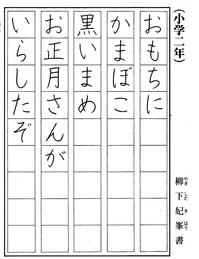 (小学二年)
おもちに
かまぼこ
黒いまめ
お正月さんが
いらしたぞ
柳下妃峯書
やぎ した き ほう